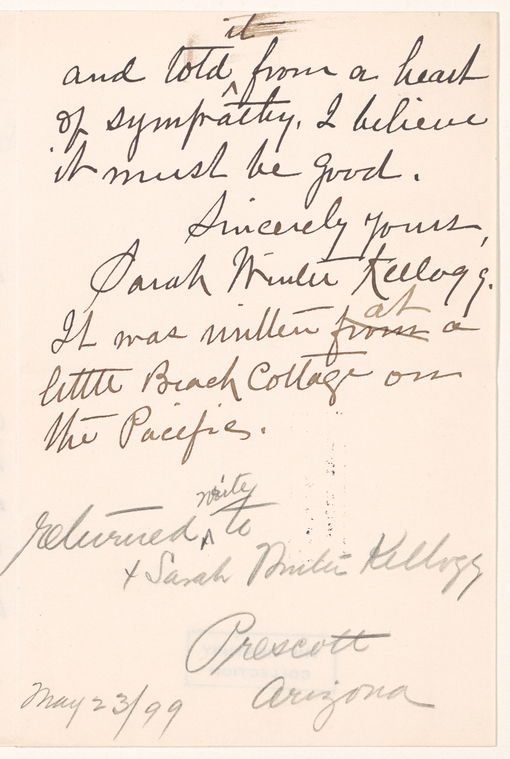 it
and told from a heart
of sympathy. I believe
it must be good.
Sincerely yours,
Sarah Winter Kellogg.
at
It was written from a
little Beach Cottage on
the Pacific.
write
returned to
+ Sarah Winter Kellogg
Prescott
Arizona
May 23/99